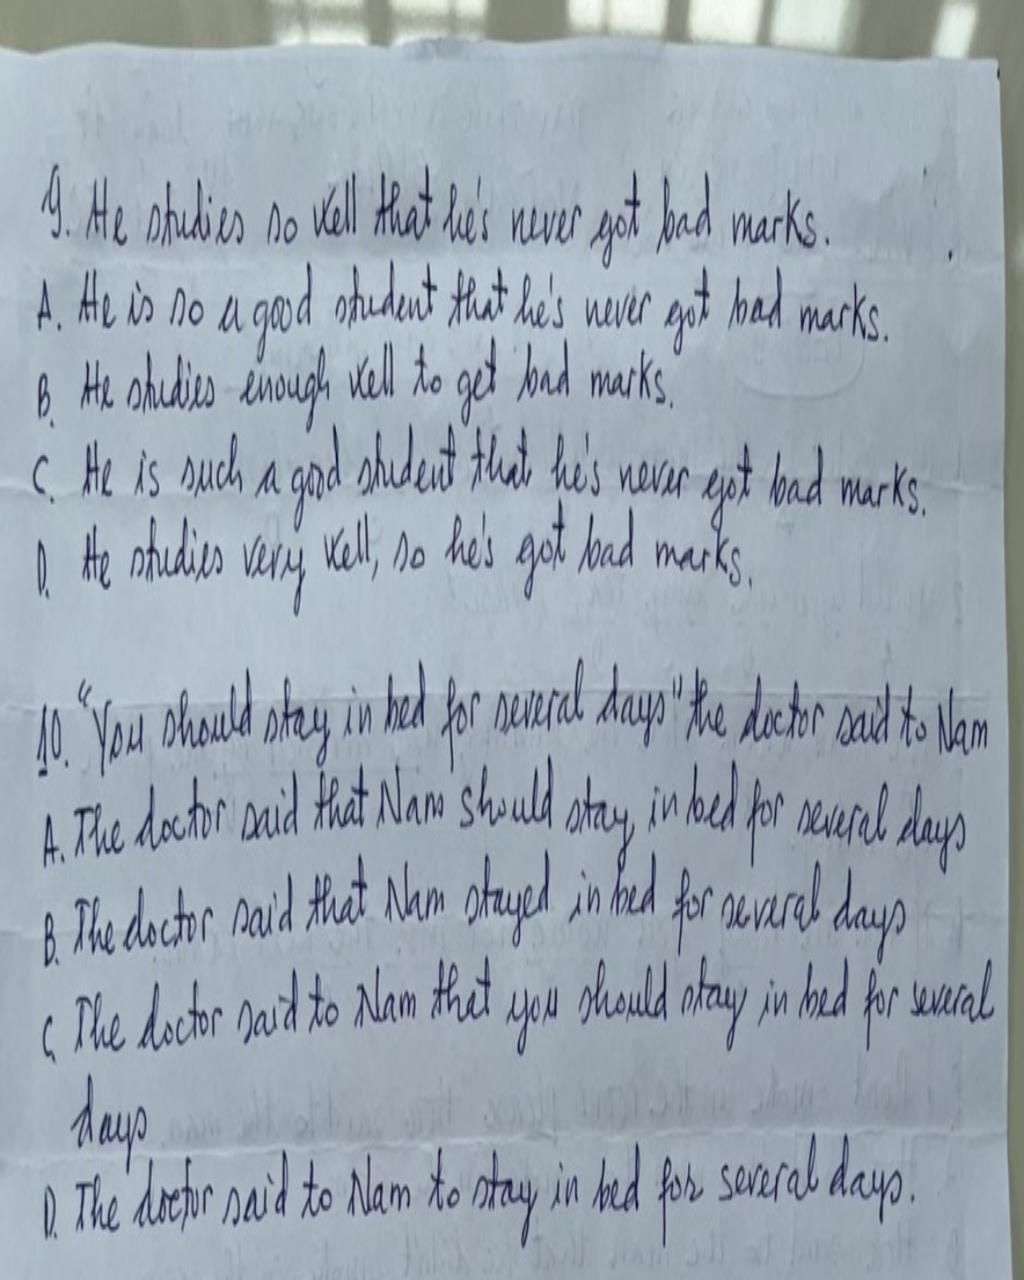 9. He studies so well that he's never got bad marks.
A. He is so a good student that he's never got bad marks.
B. He studies enough well to get bad marks.
C. He is such a good student that he's never got bad marks.
D. He studies very well, so he's got bad marks.
10. "You should stay in bed for several days" the doctor said to Nam
A. The doctor said that Nam should stay in bed for several days
B. The doctor said that Nam stayed in bed for several days
C. The doctor said to Nam that you should stay in bed for several
days
D. The doctor said to Nam to stay in bed for several days.